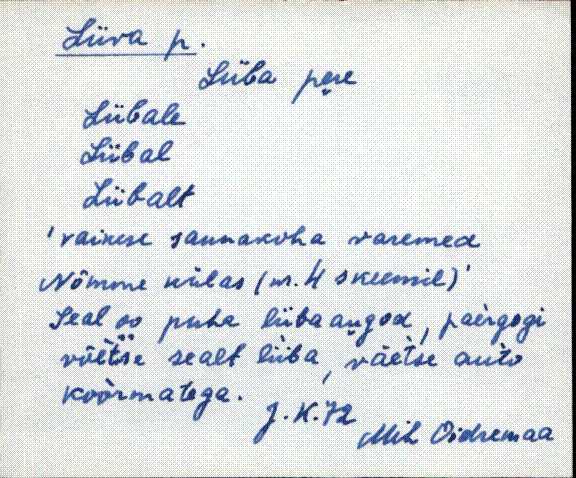 Liiva p.
Liiba pere
Liibale
Liibal
Liibalt
'väikese saunakoha varemed
Nõmme külas (nr. 4 skeemil)'
Seal oo puha liibaaugod, päergogi
võẽtse sealt liiba, väetse auto
koòrmatega.
J.K.72
Mih Oidremaa